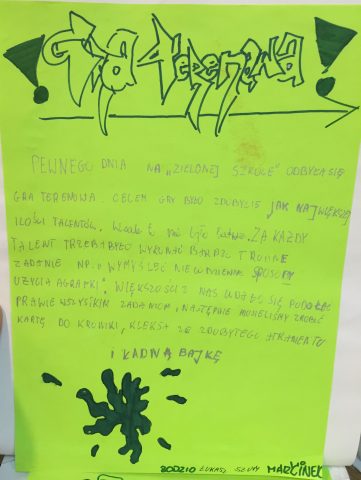 Gra Terenowa!
PEWNEGO DNIA NA „ZIELONEJ SZKOLE" ODBYŁA SIĘ
GRA TERENOWA. CELEM GRY BYŁO ZDOBYCIE JAK NAJWIĘKSZEJ
ILOŚCI TALENTÓW. Wcale t nie było łatwe. ZA KAŻDY
TALENT TRZEBA BYŁO WYKONAĆ BARDZO TRUDNE
ZADANIE NP. „WYMYŚLEĆ SPOSOBY
UŻYCIA AGRAFKI". WIĘKSZOŚCI Z NAS UDAŁO SIĘ PODOŁAĆ
PRAWIE WSZYSTKIM ZADANIOM, NASTĘPNIE MUSIELIŚMY ZROBIĆ
KARTĘ DO KRONIKI, KLEKSA ZE ZDOBYTEGO ATRAMENTU
I ŁADNĄ BAJKĘ
BODZIO ŁUKASZ SZUMY MARCINEK